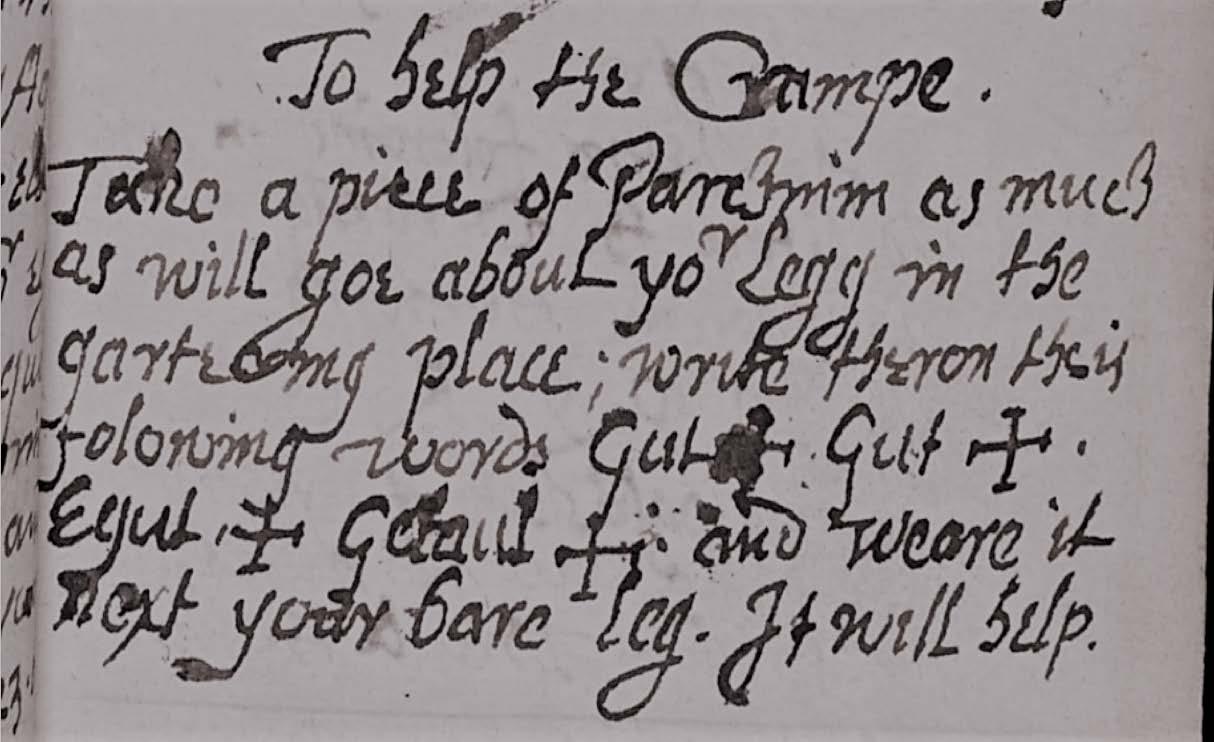 To help the Crampe.
Take a piece of Parchmim as much
as will goe about yoʳ Legg in the
gartering place; write theron theis
folowing words Gut ✝ Gut ✝.
Egut ✝ Gebaul ✝: and weare it
next your bare leg. It will help.